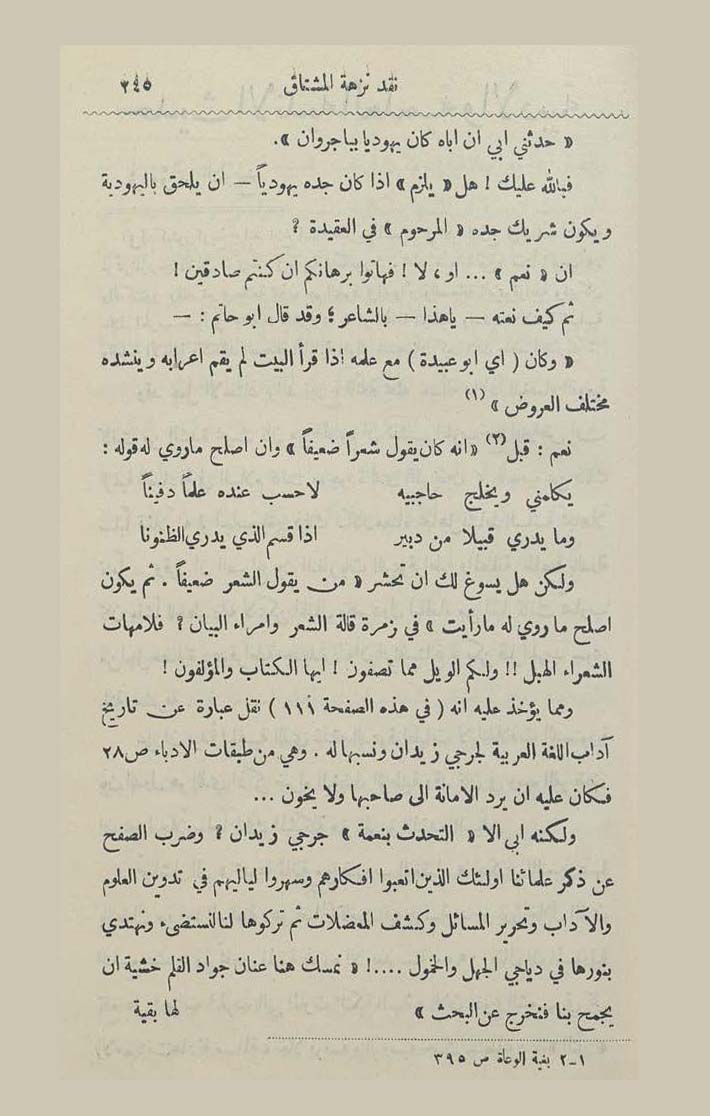 نقد نزهة المشتاق ٣٤٥
« حدثني ابي ان اباه كان يهوديا بباجروان ».
فبالله عليك ! هل « يلزم » اذا كان جده يهودياً — ان يلحق باليهودية
ويكون شريك جده « المرحوم » في العقيدة ؟
ان « نعم » ... او ، لا ! فهاتوا برهانكم ان كنتم صادقين !
ثم كيف نعته — ياهذا — بالشاعر ؛ وقد قال ابو حاتم : —
« وكان ( اي ابو عبيدة ) مع علمه اذا قرأ البيت لم يقم اعرابه وينشده
مختلف العروض » (١)
نعم : قبل (٢) «انه كان يقول شعراً ضعيفاً » وان اصلح ماروي له قوله :
يكلمني ويخلج حاجبيه لاحسب عنده علماً دفيناً
وما يدري قبيلا من دبير اذا قسم الذي يدري الظنونا
ولكن هل يسوغ لك ان تحشر « من يقول الشعر ضعيفاً . ثم يكون
اصلح ما روي له مارأيت » في زمرة قالة الشعر وامراء البيان ؟ فلامهات
الشعراء الهبل !! ولكم الويل مما تصفون ! ايها الكتاب والمؤلفون !
ومما يؤخذ عليه انه ( في هذه الصفحة ١١١ ) نقل عبارة عن تاريخ
آداب اللغة العربية لجرجي زيدان ونسبها له . وهي من طبقات الادباء ص ٢٨
فكان عليه ان يرد الامانة الى صاحبها ولا يخون ...
ولكنه ابى الا « التحدث بنعمة » جرجي زيدان ؟ وضرب الصفح
عن ذكر علمائنا اولئك الذين اتعبوا افكارهم وسهروا لياليهم في تدوين العلوم
والآداب وتحرير المسائل وكشف المعضلات ثم تركوها لنا لنستضىء ونهتدي
بنورها في دياجي الجهل والخمول ....! « نمسك هنا عنان جواد القلم خشية ان
يجمح بنا فنخرج عن البحث » لها بقية
١-٢ بغية الوعاة ص ٣٩٥